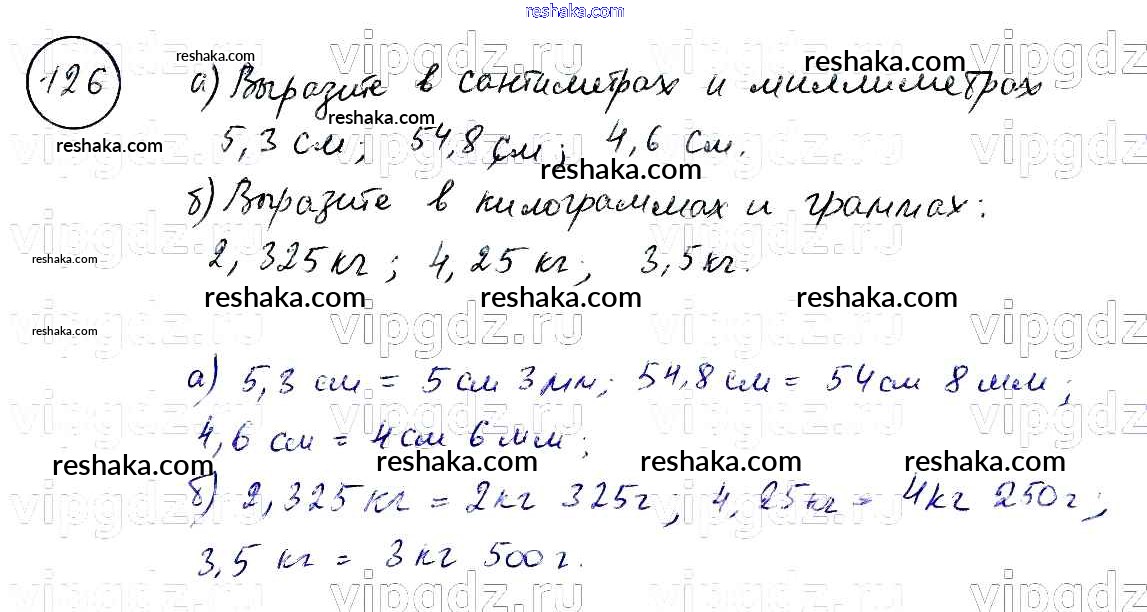 reshaka.com
126 reshaka.com
а) Выразите в сантиметрах и миллиметрах
reshaka.com
reshaka.com
5,3 см; 54,8 см; 4,6 см.
reshaka.com reshaka.com
б) Выразите в килограммах и граммах:
reshaka.com
2,325 кг; 4,25 кг; 3,5 кг.
reshaka.com reshaka.com reshaka.com
reshaka.com
vipgdz.ru vipgdz.ru vipgdz.ru
а) 5,3 см = 5 см 3 мм; 54,8 см = 54 см 8 мм;
4,6 см = 4 см 6 мм;
reshaka.com reshaka.com reshaka.com reshaka.com
б) 2,325 кг = 2 кг 325 г; 4,25 кг = 4 кг 250 г;
3,5 кг = 3 кг 500 г.
vipgdz.ru vipgdz.ru vipgdz.ru